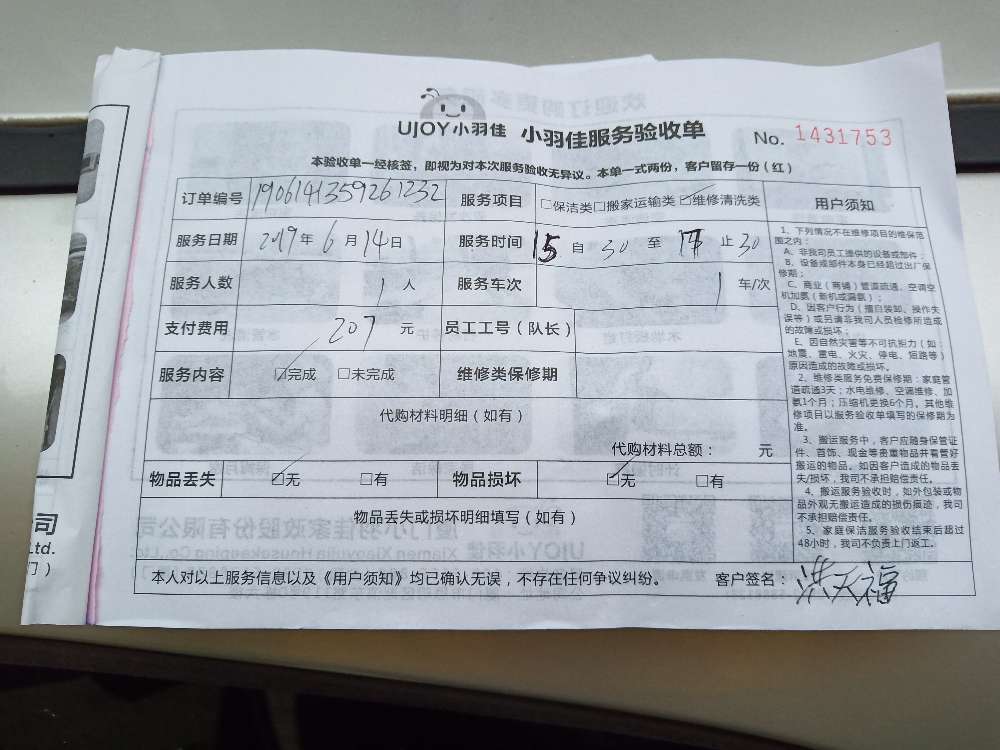 UJOY小羽佳 小羽佳服务验收单 No. 1431753
本验收单一经核签，即视为对本次服务验收无异议。本单一式两份，客户留存一份（红）
订单编号 1906141359261232 服务项目 □保洁类□搬家运输类☑维修清洗类 用户须知
服务日期 2019年6月14日 服务时间 15自30至17止30
服务人数 1人 服务车次 1车/次
支付费用 207元 员工工号（队长）
服务内容 ☑完成 □未完成 维修类保修期
代购材料明细（如有）
代购材料总额： 元
物品丢失 ☑无 □有 物品损坏 ☑无 □有
物品丢失或损坏明细填写（如有）
本人对以上服务信息以及《用户须知》均已确认无误，不存在任何争议纠纷。 客户签名：洪天福
1、下列情况不在维修项目的维保范
围之内：
A、非我司员工提供的设备或部件；
B、设备或部件本身已经超过出厂保
修期；
C、商业（商铺）管道疏通、空调空
机加氨（新机或漏氨）；
D、因客户行为（擅自装卸、操作失
误等）或另请非我司人员检修所造成
的故障或损坏；
E、因自然灾害等不可抗拒力（如：
地震、雷电、火灾、停电、短路等）
原因造成的故障或损坏。
2、维修类服务免费保修期：家庭管
道疏通3天；水电维修、空调维修、加
氨1个月；压缩机更换6个月。其他维
修项目以服务验收单填写的保修期为
准。
3、搬运服务中，客户应随身保管证
件、首饰、现金等贵重物品并看管好
搬运的物品。如因客户造成的物品丢
失/损坏，我司不承担赔偿责任。
4、搬运服务验收时，如外包装或物
品外观无搬运造成的损伤痕迹，我司
不承担赔偿责任。
5、家庭保洁服务验收结束后超过
48小时，我司不负责上门返工。
司
Ltd.
门）